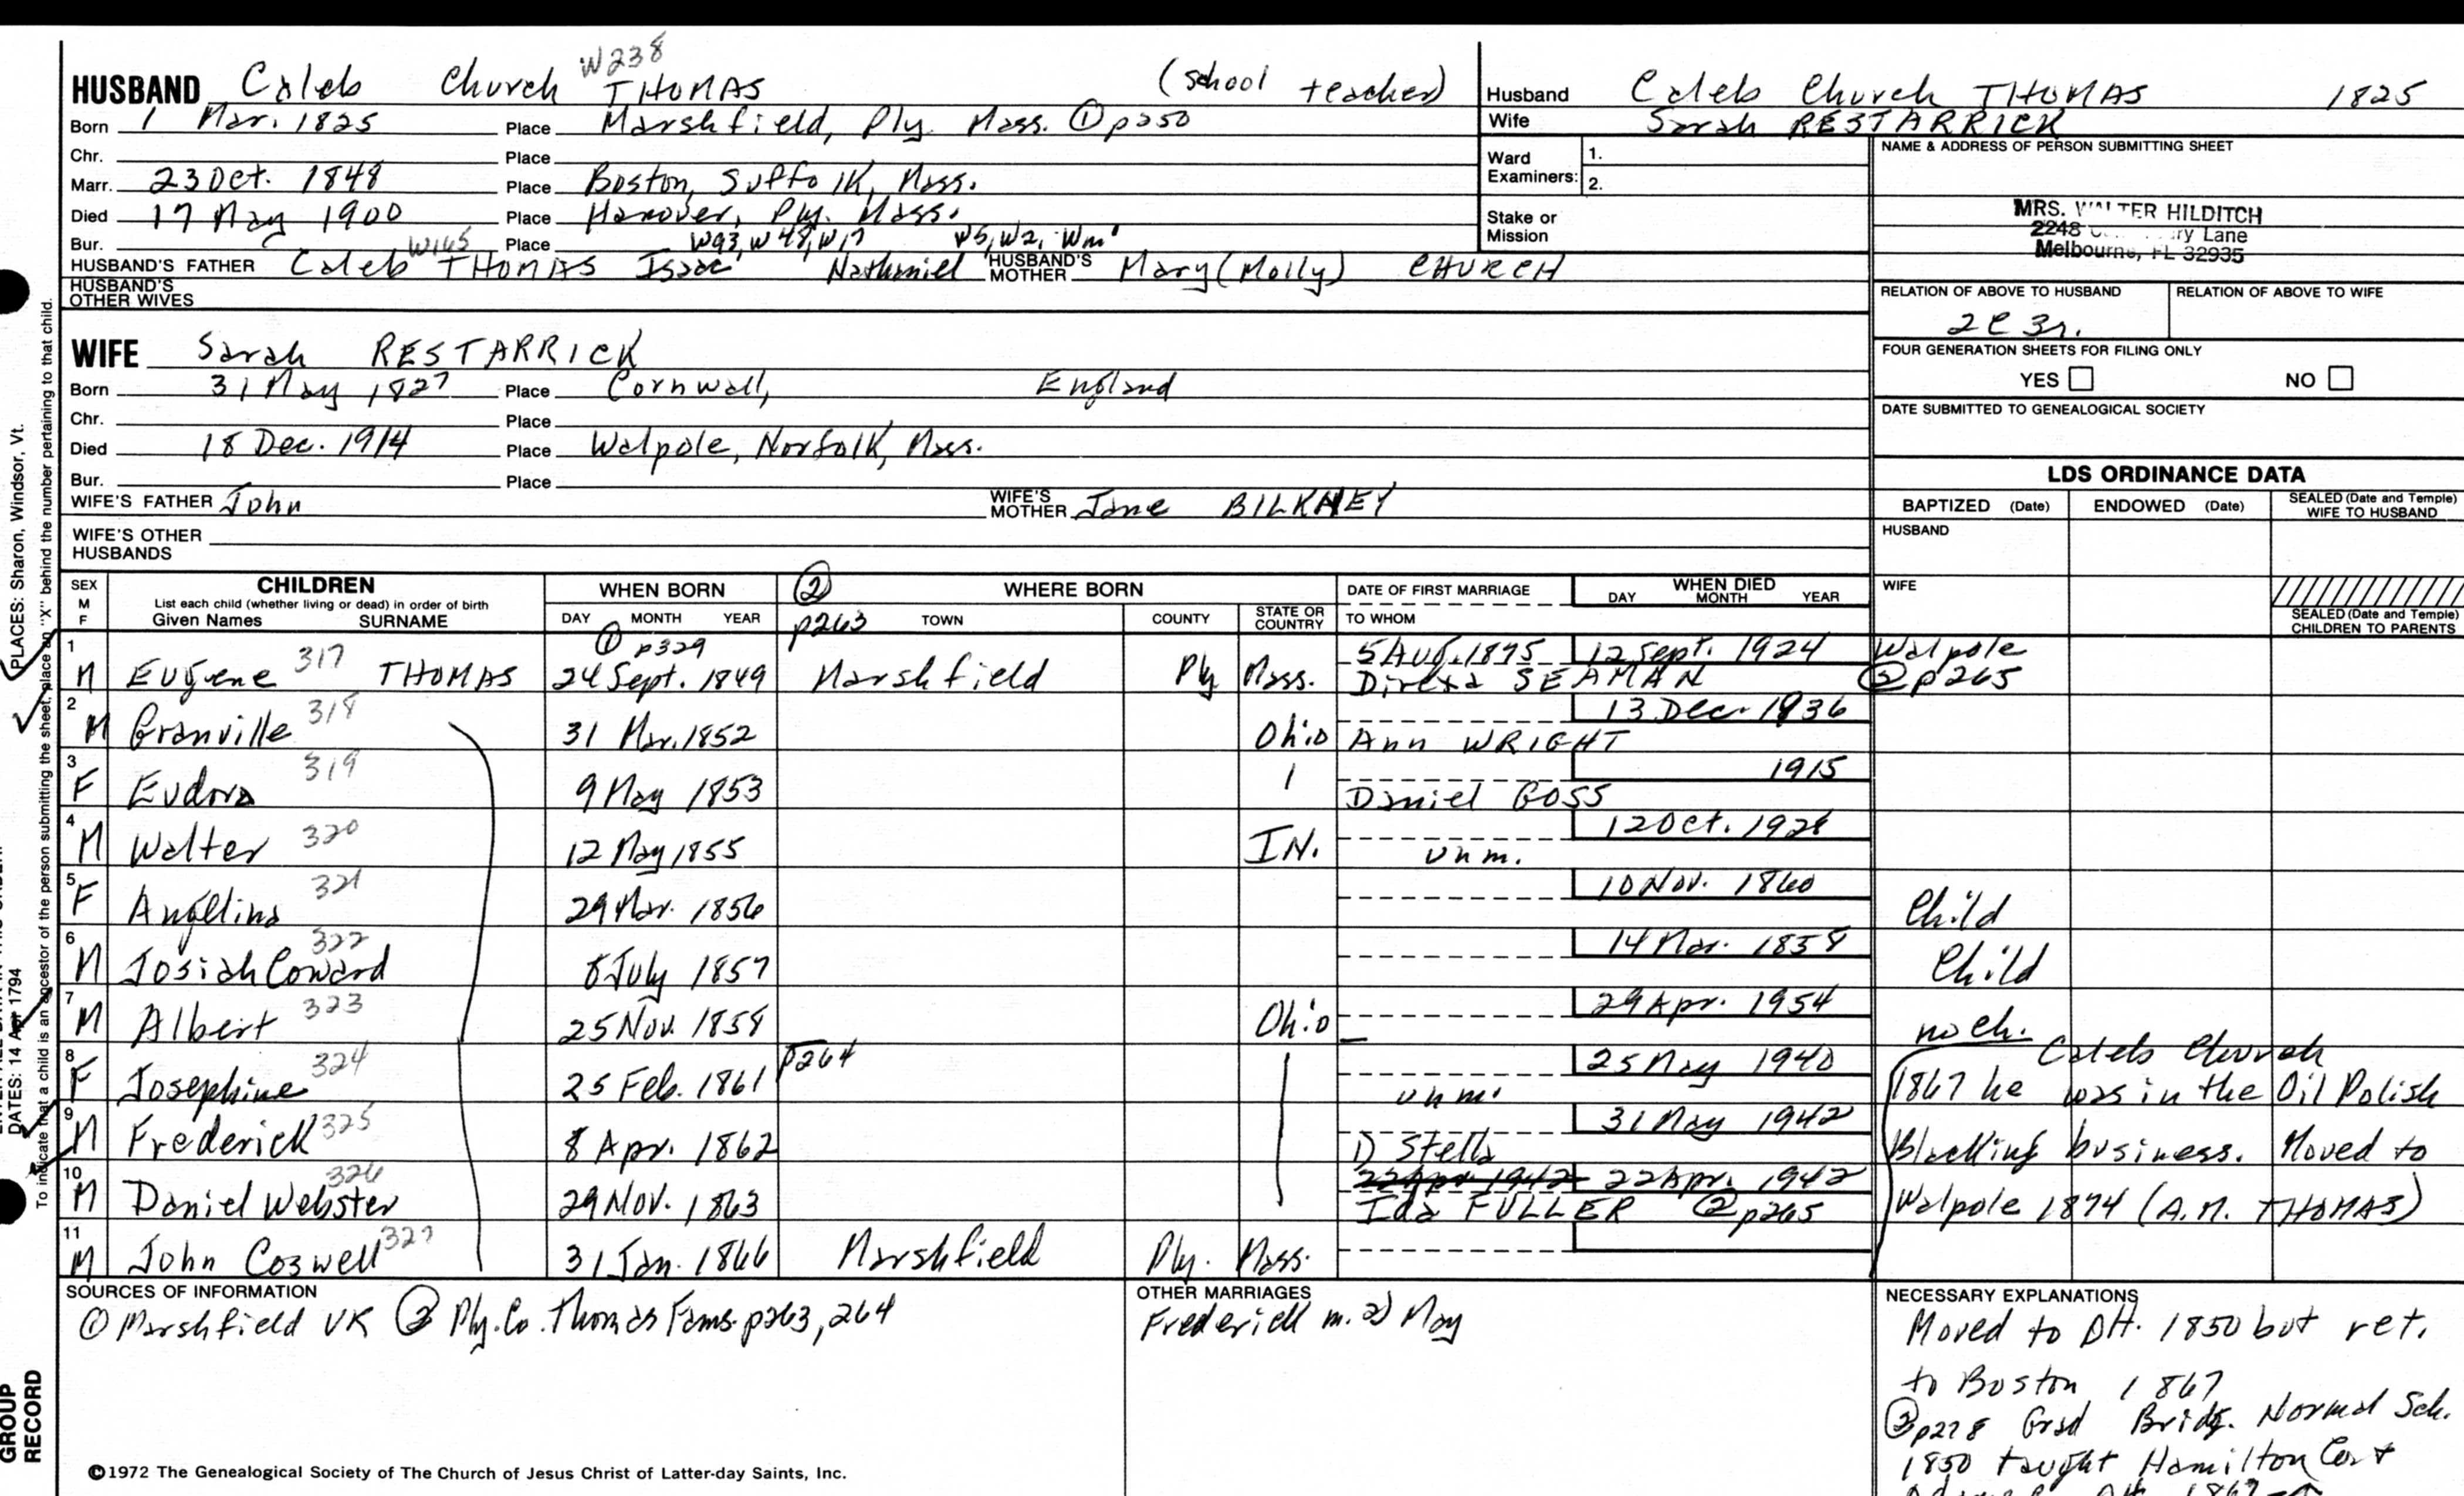 W238
HUSBAND Caleb Church THOMAS (school teacher)
Born 1 Mar. 1825 Place Marshfield, Ply. Mass. ① p250
Chr. Place
Marr. 23 Oct. 1848 Place Boston, Suffolk, Mass.
Died 17 May 1900 Place Hanover, Ply. Mass.
Bur. Place W93, W48, W17 W5, W2, Wm'
W165
HUSBAND'S FATHER Caleb THOMAS Isaac Nathaniel HUSBAND'S MOTHER Mary (Molly) CHURCH
HUSBAND'S OTHER WIVES
WIFE Sarah RESTARRICK
Born 31 May 1827 Place Cornwall, England
Chr. Place
Died 18 Dec. 1914 Place Walpole, Norfolk, Mass.
Bur. Place
WIFE'S FATHER John WIFE'S MOTHER Jane BILKNEY
WIFE'S OTHER HUSBANDS
Husband Caleb Church THOMAS 1825
Wife Sarah RESTARRICK
Ward Examiners: 1.
2.
Stake or Mission
NAME & ADDRESS OF PERSON SUBMITTING SHEET
MRS. WALTER HILDITCH
2248 Lane
Melbourne, FL 32935
RELATION OF ABOVE TO HUSBAND RELATION OF ABOVE TO WIFE
2C 3r.
FOUR GENERATION SHEETS FOR FILING ONLY
YES NO
DATE SUBMITTED TO GENEALOGICAL SOCIETY
LDS ORDINANCE DATA
BAPTIZED (Date) ENDOWED (Date) SEALED (Date and Temple) WIFE TO HUSBAND
HUSBAND
WIFE
SEALED (Date and Temple) CHILDREN TO PARENTS
SEX M F
CHILDREN
List each child (whether living or dead) in order of birth
Given Names SURNAME
WHEN BORN
DAY MONTH YEAR
② p263
WHERE BORN
TOWN COUNTY STATE OR COUNTRY
DATE OF FIRST MARRIAGE
TO WHOM
WHEN DIED
DAY MONTH YEAR
① p329
1 M Eugene 317 THOMAS 24 Sept. 1849 Marshfield Ply Mass. 5 Aug. 1875 12 Sept. 1924 Walpole
Direxa SEAMAN ② p265
2 M Granville 318 31 Mar. 1852 Ohio 13 Dec. 1936
Ann WRIGHT
3 F Eudora 319 9 May 1853 1915
Daniel GOSS
4 M Walter 320 12 May 1855 IN. 12 Oct. 1928
unm.
5 F Angelina 321 29 Mar. 1856 10 Nov. 1860 Child
6 M Josiah Coward 322 8 July 1857 14 Mar. 1858 Child
7 M Albert 323 25 Nov. 1858 Ohio 29 Apr. 1954 no ch.
8 F Josephine 324 25 Feb. 1861 p264 25 May 1940
unm.
9 M Frederick 325 8 Apr. 1862 31 May 1942
1) Stella
10 M Daniel Webster 326 29 Nov. 1863 22 Apr. 1942 22 Apr. 1942
Ida FULLER ② p265
11 M John Cozwell 327 31 Jan. 1866 Marshfield Ply. Mass.
Caleb Church
1867 he was in the Oil Polish
Blacking business. Moved to
Walpole 1874 (A.M. THOMAS)
SOURCES OF INFORMATION
① Marshfield VR ② Ply. Co. Thomas Fams. p263, 264
OTHER MARRIAGES
Frederick m. 2) May
NECESSARY EXPLANATIONS
Moved to OH. 1850 but ret.
to Boston 1867
② p278 Grad Bridg. Normal Sch.
1850 taught Hamilton Co. +
©1972 The Genealogical Society of The Church of Jesus Christ of Latter-day Saints, Inc.
PLACES: Sharon, Windsor, Vt.
DATES: 14 Apr 1794
To indicate that a child is an ancestor of the person submitting the sheet, place an "X" behind the number pertaining to that child.
GROUP
RECORD